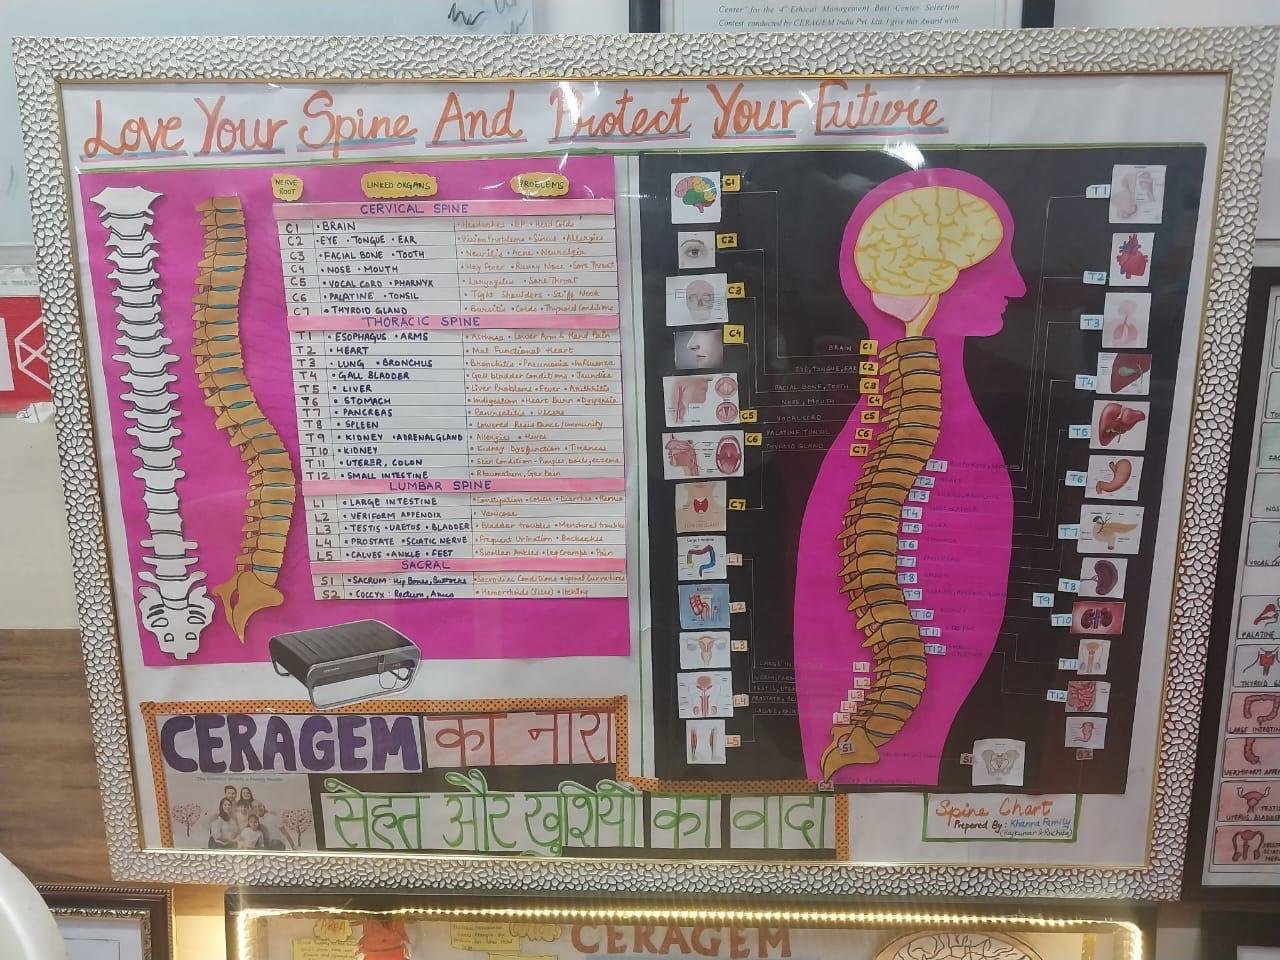 Center" for the 4th Ethical Management Best Center Selection
Contest conducted by CERAGEM India Pvt. Ltd. I give this Award with
Love Your Spine And Protect Your Future
NERVE ROOT
LINKED ORGANS
PROBLEMS
CERVICAL SPINE
C1 • BRAIN • Headaches • BP • Head Colds
C2 • EYE • TONGUE • EAR • Vision Problems • Sinus • Allergies
C3 • FACIAL BONE • TOOTH • Neuritis • Acne • Neuralgia
C4 • NOSE • MOUTH • Hay Fever • Runny Nose • Sore Throat
C5 • VOCAL CORD • PHARNYX • Laryngitis • Sore Throat
C6 • PALATINE • TONSIL • Tight Shoulders • Stiff Neck
C7 • THYROID GLAND • Bursitis • Colds • Thyroid Conditions
THORACIC SPINE
T1 • ESOPHAGUS • ARMS • Asthma • Lower Arm & Hand Pain
T2 • HEART • Mal Functional Heart
T3 • LUNG • BRONCHUS • Bronchitis • Pneumonia • Influenza
T4 • GALL BLADDER • Gall bladder Conditions • Jaundice
T5 • LIVER • Liver Problems • Fever • Arithritis
T6 • STOMACH • Indigestion • Heart Burn • Dyspepsia
T7 • PANCREAS • Pancreatitis • Ulcers
T8 • SPLEEN • Lowered Resistance/Immunity
T9 • KIDNEY • ADRENALGLAND • Allergies • Hives
T10 • KIDNEY • Kidney Dysfunction • Tiredness
T11 • UTERER, COLON • Skin Condition - Pimples, boils, eczema
T12 • SMALL INTESTINE • Rheumatism, Gas Pain
LUMBAR SPINE
L1 • LARGE INTESTINE • Constipation • Colitis • Diarrhea • Hernia
L2 • VERIFORM APPENDIX • Varicose
L3 • TESTIS • URETUS • BLADDER • Bladder troubles • Menstural troubles
L4 • PROSTATE • SCIATIC NERVE • Frequent Urination • Backaches
L5 • CALVES • ANKLE • FEET • Swollen Ankles • Leg Cramps • Pain
SACRAL
S1 • SACRUM : Hip Bones, Buttocks • Sacroiliac Conditions • Spinal Curvatures
S2 • COCCYX : Rectum, Anus • Hemorrhoids (Piles) • Itching
CERAGEM का नारा
सेहत और खुशियों का वादा
C1
C2
C3
C4
C5
C6
C7
L1
L2
L3
L4
L5
BRAIN C1
EYE, TONGUE, EAR C2
FACIAL BONE, TOOTH C3
NOSE, MOUTH C4
VOCAL CORD C5
PALATINE TONSIL C6
THYROID GLAND C7
T1
T2
T3
T4
T5
T6
T7
T8
T9
T10
T11
T12
L1
L2
L3
L4
L5
S1
T1
T2
T3
T4
T5
T6
T7
T8
T9
T10
T11
T12
S1
Spine Chart
Prepared By : Khanna Family
(Rajkumar & Ruchika)
CERAGEM